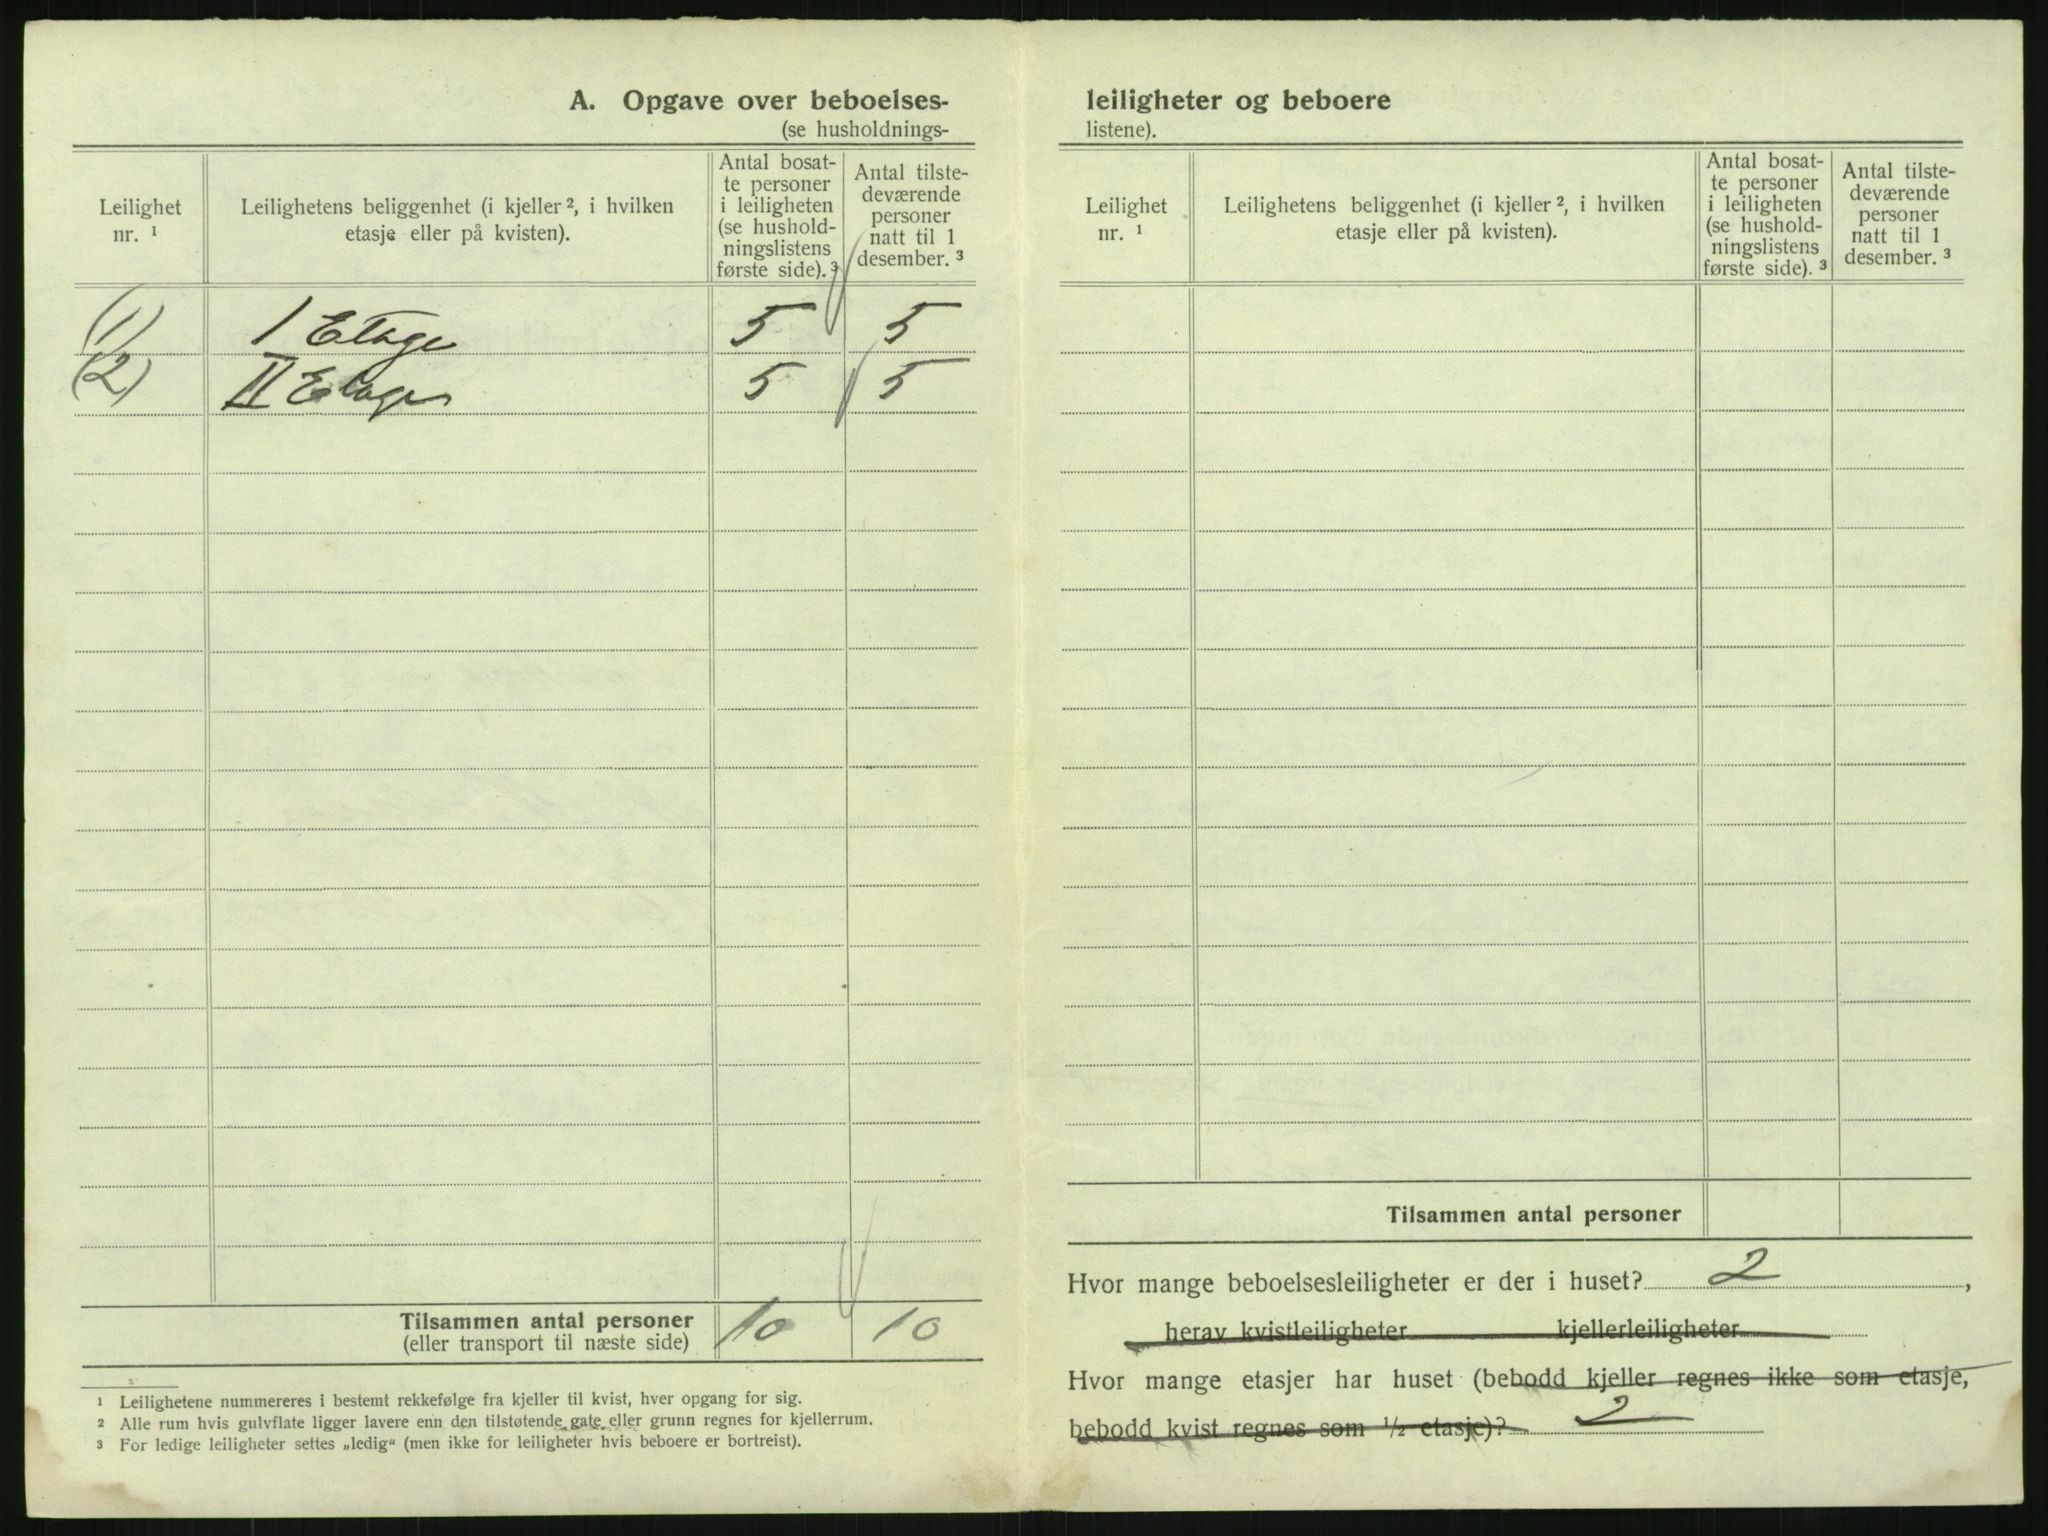 A. Opgave over beboelses-
(se husholdnings-
Leilighet
nr. ¹
Leilighetens beliggenhet (i kjeller ², i hvilken
etasje eller på kvisten).
Antal bosat-
te personer
i leiligheten
(se hushold-
ningslistens
første side). ³
Antal tilste-
deværende
personer
natt til 1
desember. ³
(1) I Etage 5 5
(2) II Etage 5 5
Tilsammen antal personer 10 10
(eller transport til næste side)
¹ Leilighetene nummereres i bestemt rekkefølge fra kjeller til kvist, hver opgang for sig.
² Alle rum hvis gulvflate ligger lavere enn den tilstøtende gate eller grunn regnes for kjellerrum.
³ For ledige leiligheter settes „ledig“ (men ikke for leiligheter hvis beboere er bortreist).
leiligheter og beboere
listene).
Leilighet
nr. ¹
Leilighetens beliggenhet (i kjeller ², i hvilken
etasje eller på kvisten).
Antal bosat-
te personer
i leiligheten
(se hushold-
ningslistens
første side). ³
Antal tilste-
deværende
personer
natt til 1
desember. ³
Tilsammen antal personer
Hvor mange beboelsesleiligheter er der i huset? 2 ,
herav kvistleiligheter kjellerleiligheter
Hvor mange etasjer har huset (bebodd kjeller regnes ikke som etasje,
bebodd kvist regnes som ½ etasje)? 2